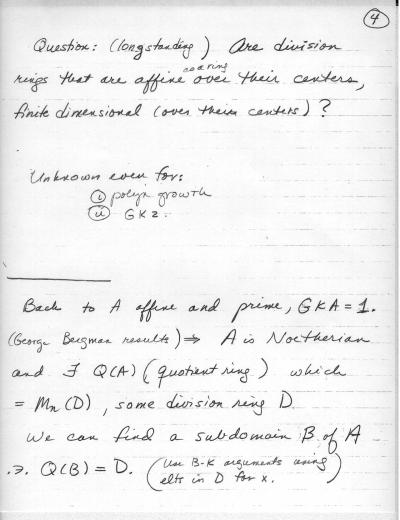 4
Question: (longstanding) Are division
rings that are affine as a ring over their centers,
finite dimensional (over their centers)?
Unknown even for:
(i) polyn growth
(ii) GK 2.
Back to A affine and prime, GKA = 1.
(George Bergman results) ⇒ A is Noetherian
and ∃ Q(A) (quotient ring) which
= Mn(D), some division ring D.
We can find a subdomain B of A
.∋. Q(B) = D. (Use B-K arguments using
elts in D for x.)